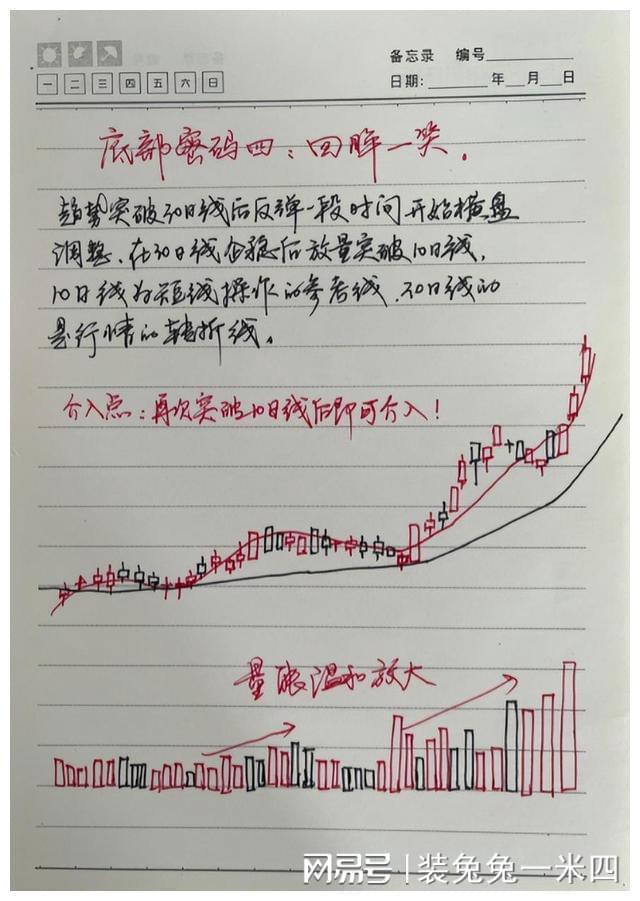 备忘录 编号
一 二 三 四 五 六 日
日期: 年 月 日
底部密码四：回眸一笑.
趋势突破30日线后反弹一段时间开始横盘
调整.在30日线企稳后放量突破10日线,
10日线为短线操作的参考线.30日线的
是行情的转折线。
介入点：再次突破10日线后即可介入!
量能温和放大
网易号 | 装兔兔一米四